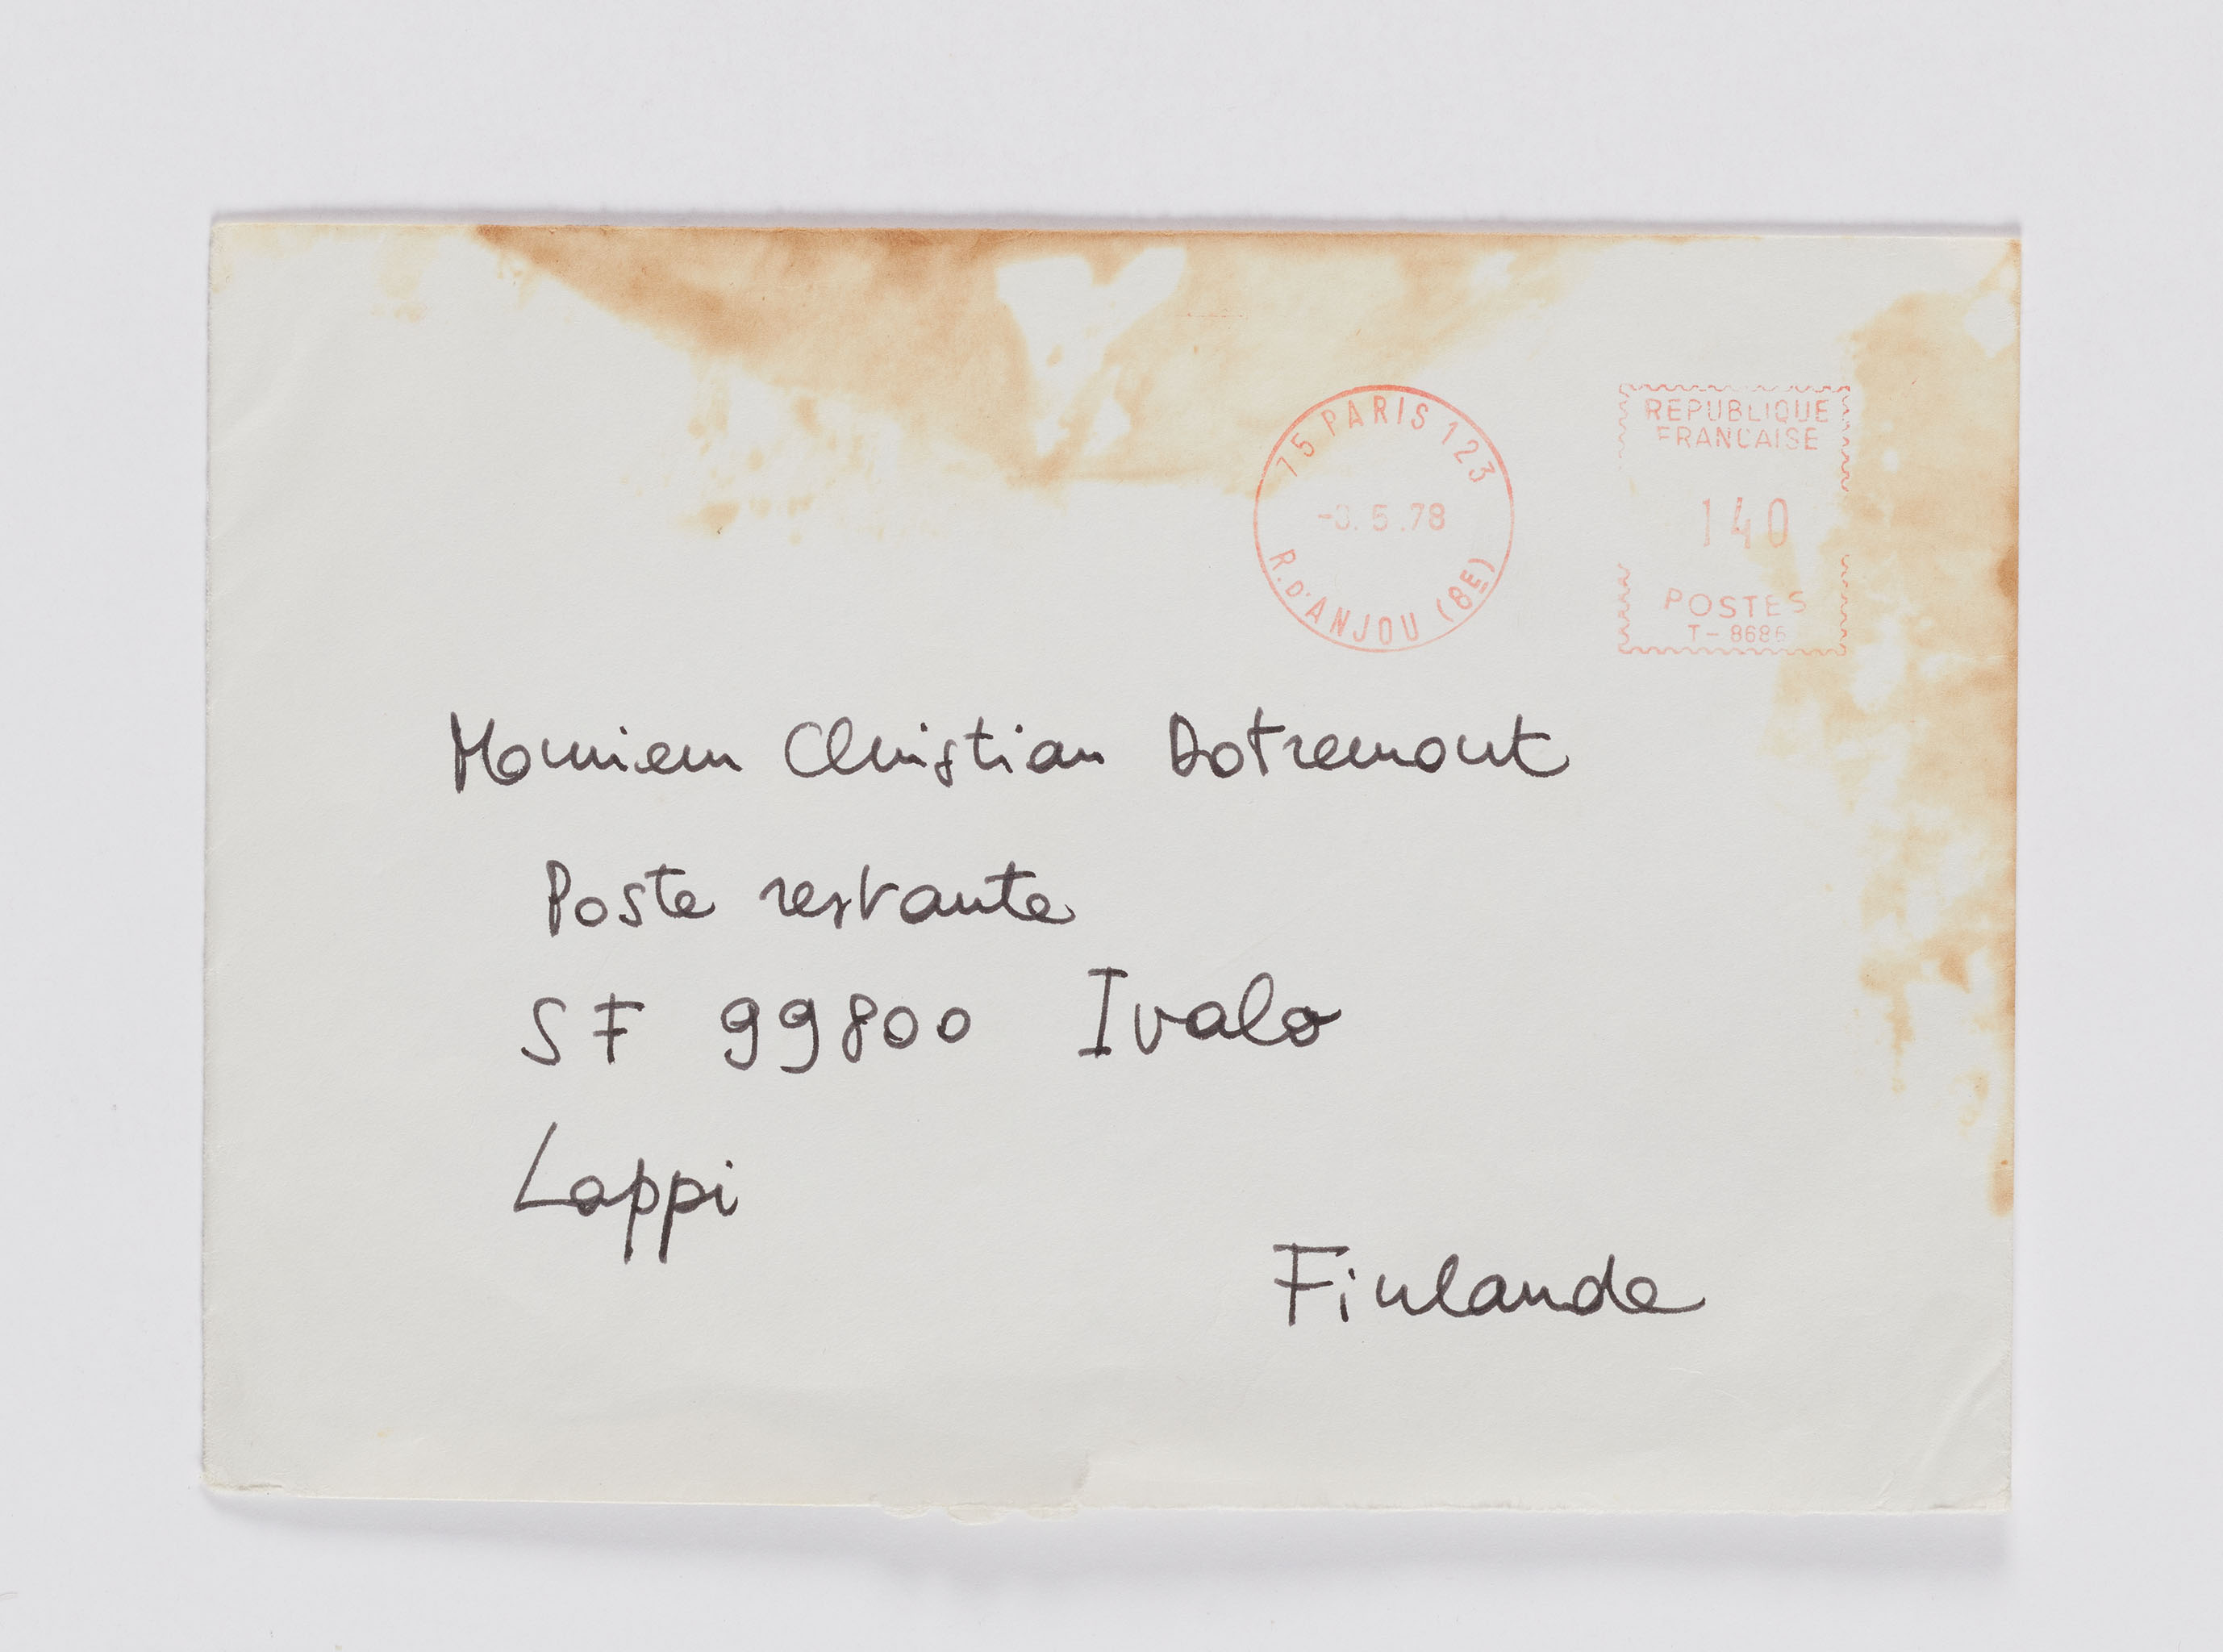 75 PARIS 123
5.78
R. D'ANJOU (8E)
REPUBLIQUE
FRANCAISE
140
POSTES
T-8686
Monsieur Christian Dotremont
Poste restante
SF 99800 Ivalo
Lappi
Finlande